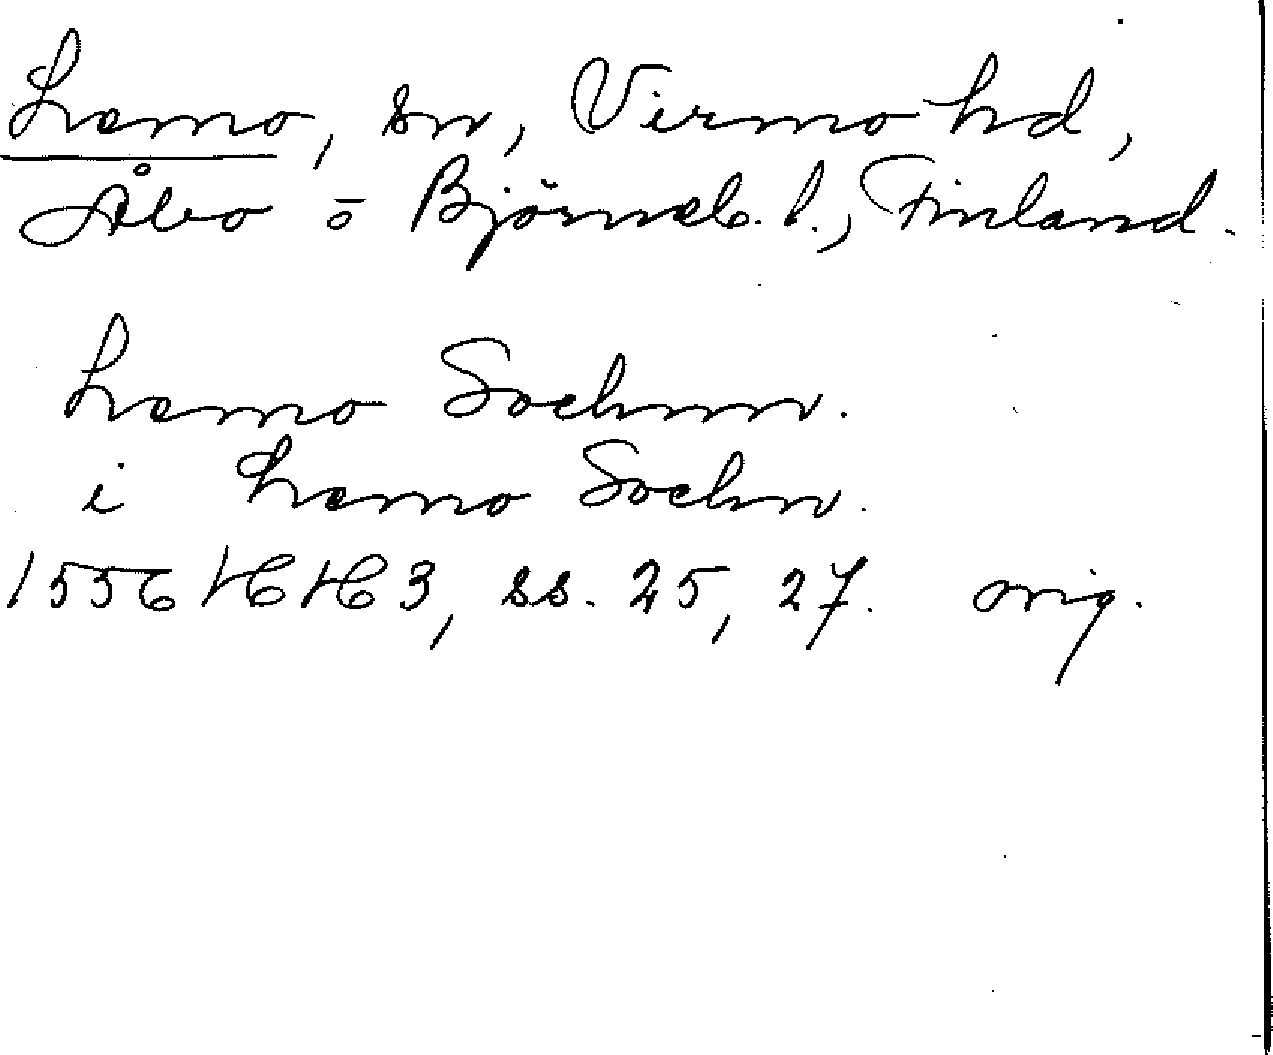 Lemo, sn, Virmo hd,
Åbo o Björneb. l., Finland.
Lemo Sochnn.
i Lemo Sochn.
1556 16/6 3, ss. 25, 27. orig.